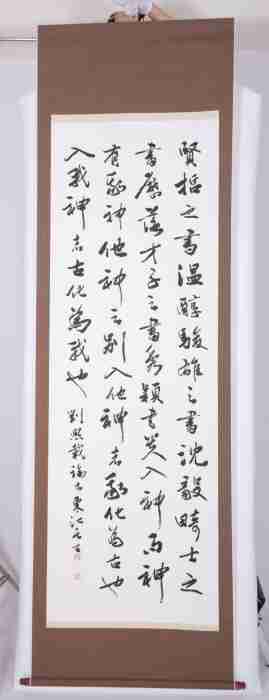 賢哲之書温醇駿雄之書沈毅畸士之
書歷落才子之書秀穎書貴入神而神
有我神他神之別入他神者我化為古也
入我神者古化為我也 劉熙載論書 東江